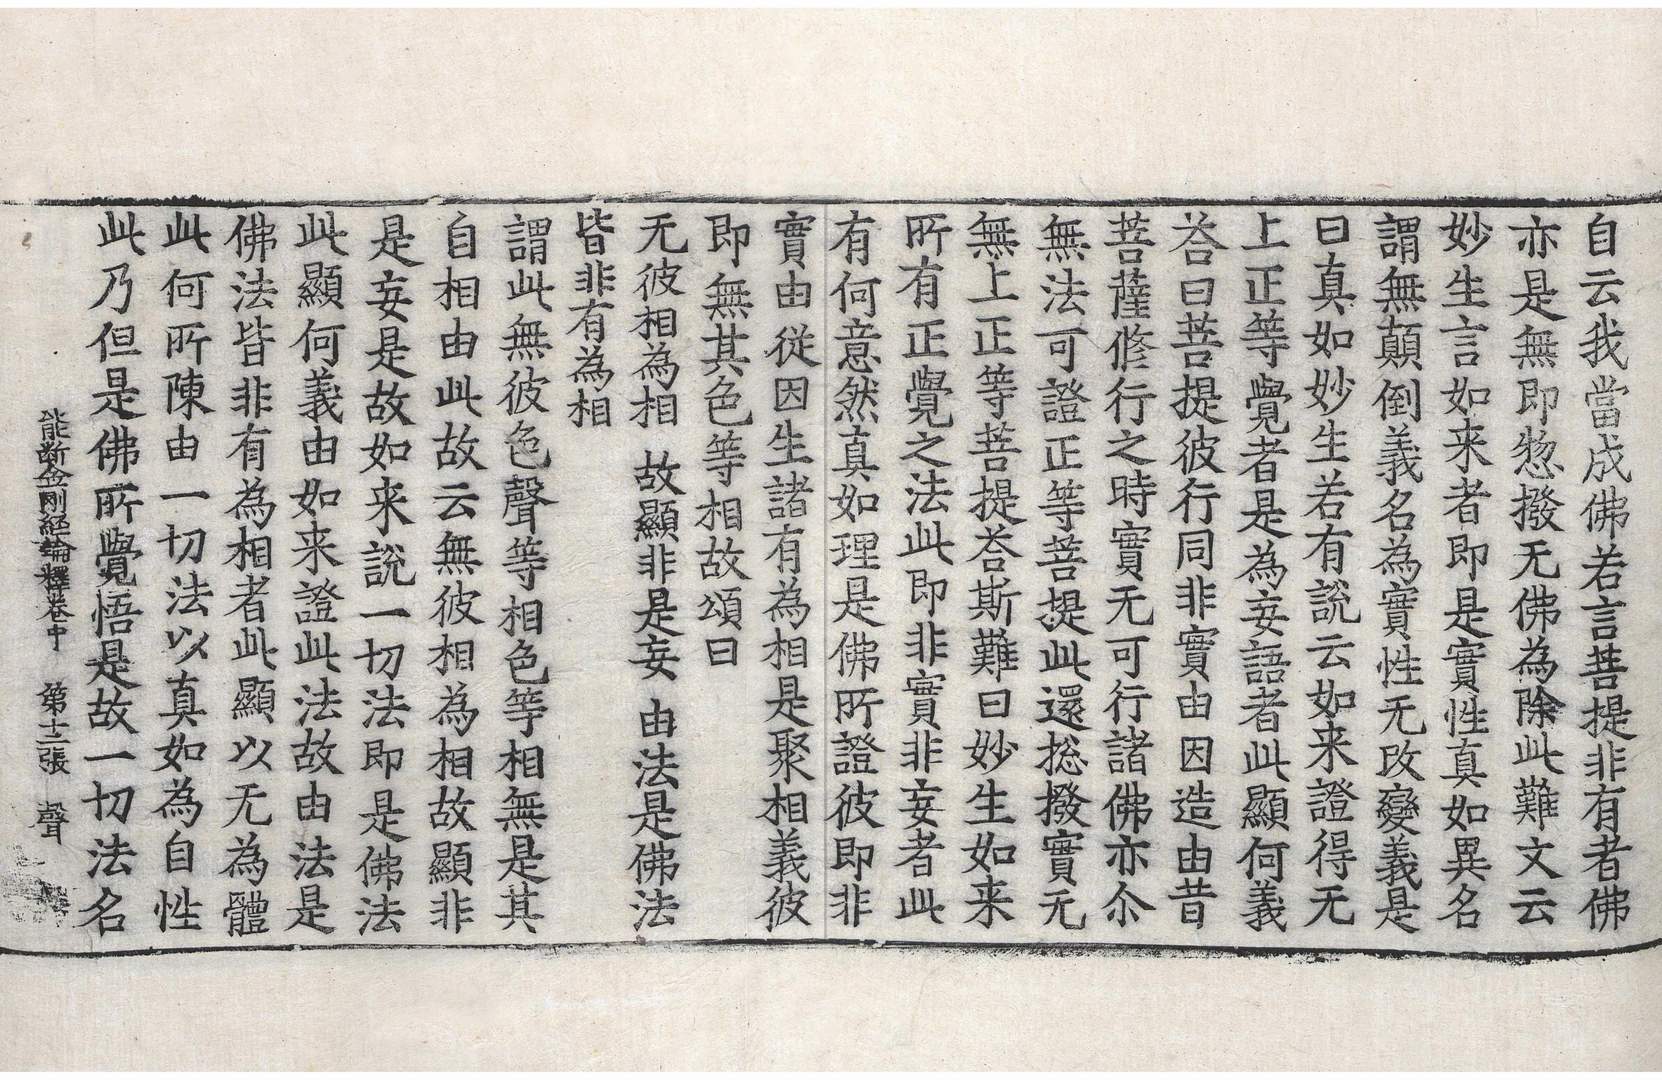 自云我當成佛若言菩提非有者佛
亦是無即惣撥无佛為除此難文云
妙生言如来者即是實性真如異名
謂無顛倒義名為實性无改變義是
曰真如妙生若有說云如来證得无
上正等覺者是為妄語者此顯何義
荅曰菩提彼行同非實由因造由昔
菩薩修行之時實无可行諸佛亦尒
無法可證正等菩提此還捴撥實无
無上正等菩提荅斯難曰妙生如来
所有正覺之法此即非實非妄者此
有何意然真如理是佛所證彼即非
實由從因生諸有為相是聚相義彼
即無其色等相故頌曰
无彼相為相 故顯非是妄 由法是佛法
皆非有為相
謂此無彼色聲等相色等相無是其
自相由此故云無彼相為相故顯非
是妄是故如来說一切法即是佛法
此顯何義由如来證此法故由法是
佛法皆非有為相者此顯以无為體
此何所陳由一切法以真如為自性
此乃但是佛所覺悟是故一切法名
能斷金剛經論釋卷中 第十二張 聲